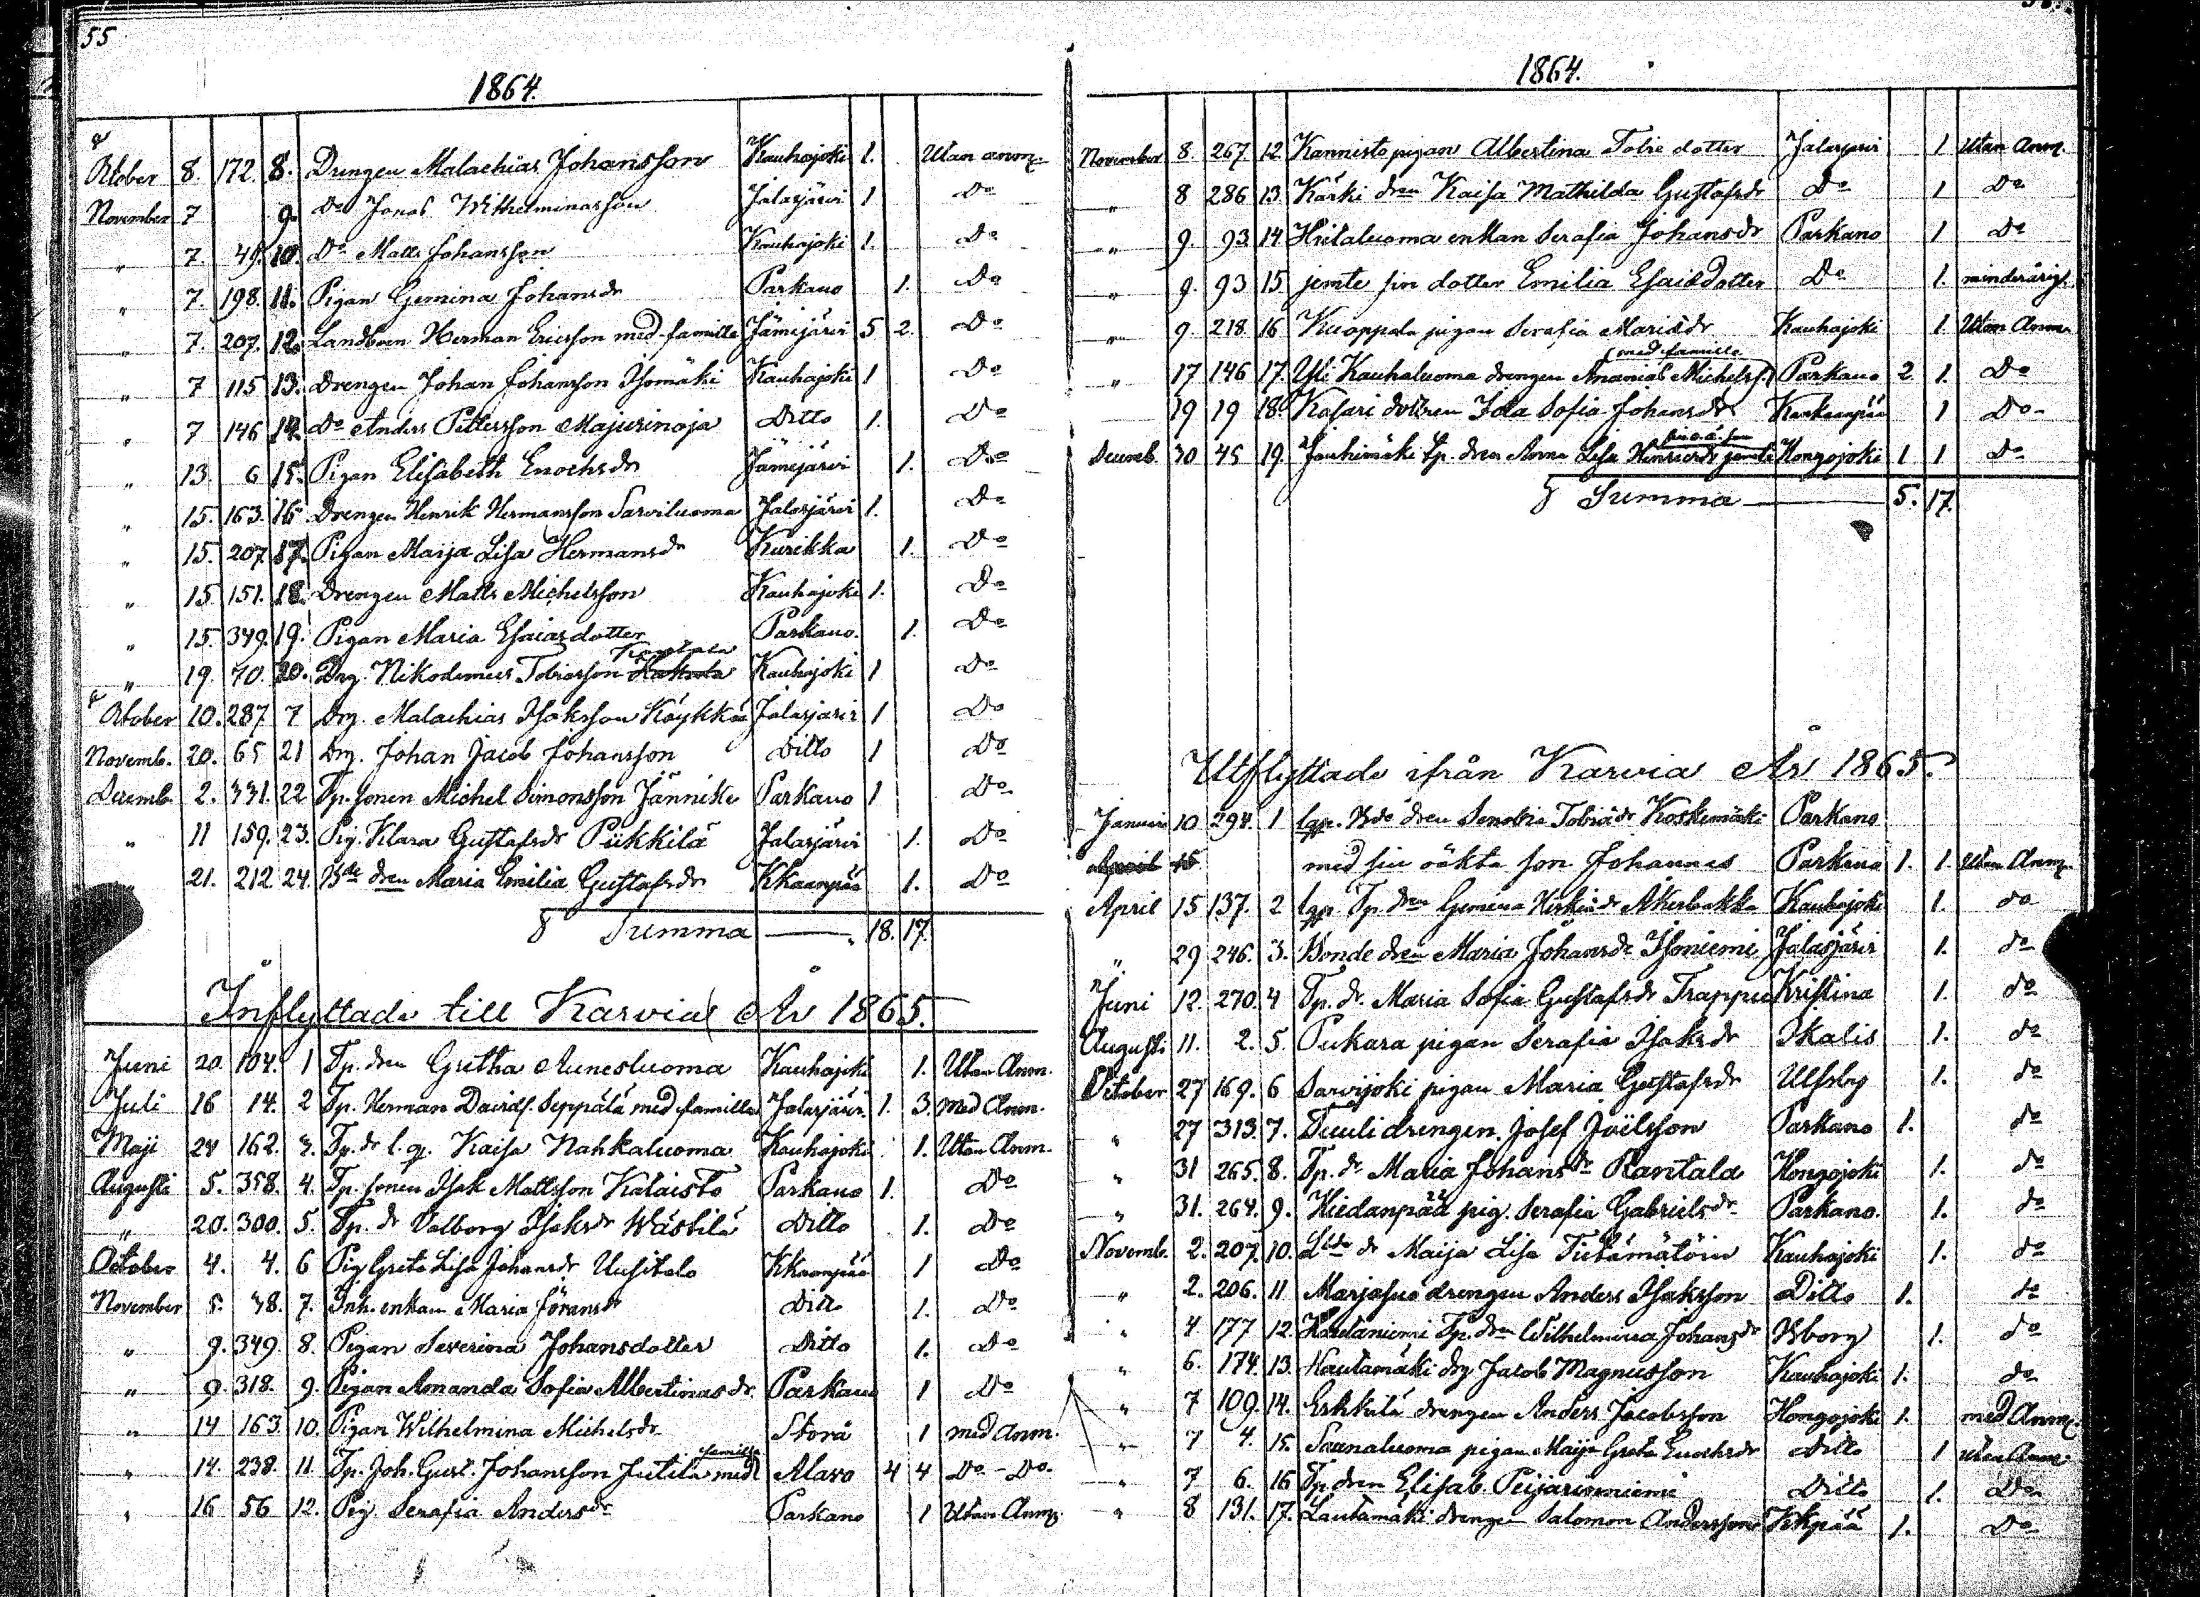 55
1864.
October 8. 172. 8. Drengen Malachias Johansson Kauhajoki 1. Utan anm.
November 7 9. Do Jonas Wilhelminasson Jalasjärvi 1 Do
" 7. 49. 10. Do Matts Johansson Kauhajoki 1. Do
" 7. 198. 11. Pigan Gemina Johansdr Parkano 1. Do
" 7. 207. 12. Landboen Herman Ericsson med familie Jämijärvi 5 2. Do
" 7 115 13. Drengen Johan Johansson Isomäki Kauhajoki 1 Do
" 7 146 14. Do Anders Pettersson Majurinoja Ditto 1. Do
" 13. 6 15. Pigan Elisabeth Enochsdr Jämijärvi 1. Do
" 15. 163. 16. Drengen Henrik Hermansson Sarviluoma Jalasjärvi 1. Do
" 15. 207 17. Pigan Maija Lisa Hermansdr Kurikka 1. Do
" 15 151. 18. Drengen Matts Michelsson Kauhajoki 1. Do
" 15. 349. 19. Pigan Maria Esaiasdotter Parkano. 1. Do
" 19. 70. 20. Drg. Nikodemus Tobiasson Kauhajoki 1 Do
October 10. 287 7 Drg. Malachias Isaksson Köykkä Jalasjärvi 1 Do
Novemb. 20. 65 21 Drg. Johan Jacob Johansson Ditto 1 Do
Decemb. 2. 331. 22 Tp. sonen Michel Simonsson Jännike Parkano 1 Do
" 11 159. 23. Pig. Klara Gustafsdr Piikkilä Jalasjärvi 1. Do
" 21. 212 24. Bde dren Maria Emilia Gustafsdr Kkaanpää 1. Do
Summa 18. 17.
Inflyttade till Karvia År 1865.
Juni 20. 104. 1 Tp. dren Gretha Aunesluoma Kauhajoki 1. Utan Anm.
Juli 16 14. 2 Tp. Herman Davidss. Seppälä med familie Jalasjärvi. 1. 3. Med Anm.
Maji 24 162. 3. Tp. dr l. q. Kaisa Nahkaluoma Kauhajoki 1. Utan Anm.
Augusti 5. 358. 4. Tp. sonen Isak Mattsson Kalaisto Parkano 1. Do
" 20. 300. 5. Tp. dr Valborg Isaksdr Wästilä Ditto 1. Do
October 4. 4. 6 Pig Greta Lisa Johansdr Uusitalo Kkaanpää 1 Do
November 5. 38. 7. Inh. enkan Maria Göransdr Ditto 1. Do
" 9. 349. 8. Pigan Severina Johansdotter Ditto 1. Do
" 9. 318. 9. Pigan Amanda Sofia Albertinasdr. Parkano 1 Do
" 14 163 10. Pigan Wilhelmina Michelsdr Storå 1 med Anm.
" 14. 238. 11. Tp. Joh. Gust. Johansson Jutila med familie Alavo 4 4 Do - Do.
" 16 56 12. Pig Serafia Andersdr Parkano 1 Utan Anm.
1864.
November 8. 267 12 Kannisto pigan Albertina Tobiedotter Jalasjärvi 1 Utan Anm.
" 8 286 13 Karki dren Kaisa Mathilda Gustafsdr Do 1 Do
" 9. 93 14 Hiitaluoma enkan Serafia Johansdr Parkano 1 Do
" 9. 93 15 jemte sin dotter Emilia Esaiedotter Do 1. minderårig.
" 9. 218. 16 Kuoppala pigan Serafia Mariedr Kauhajoki 1 Utan Anm.
" 17 146 17. Yli Kauhaluoma drengen Ananias Michelss. med familie Parkano 2 1. Do
19 19 18. Kasari dottren Ida Sofia Johansdr Kankaanpää 1 Do
Decemb. 30 45 19. Jauhimäki Tp. dren Anna Lisa Henricsdr jemte sin o.ä. son Hongojoki 1 1 Do
Summa 5. 17.
Utflyttade ifrån Karvia År 1865.
Januari 10 294. 1 lgp. Bde dren Senobia Tobiädr Koskemäki Parkano
april 15 med sin oäkta son Johannes Parkano 1. 1. Utan Anm.
April 15 137. 2 lgp. Tp. dren Gemina Heikiädr Åkerbakka Kauhajoki 1. do
" 29 246. 3. Bonde dren Maria Johansdr Isoniemi Jalasjärvi 1. do
Juni 12. 270. 4 Tp. dr. Maria Sofia Gustafsdr Trappu Kristina 1. do
Augusti 11. 2. 5. Pukara pigan Serafia Isaksdr Ikalis 1. do
October 27 169. 6 Sarvijoki pigan Maria Gustafsdr Ulfsby 1. do
" 27 313. 7. Tuuli drengen Josef Joëlsson Parkano 1. do
" 31 265. 8. Tp. dr Maria Johansdr Rantala Hongojoki 1. do
" 31. 264. 9. Hiedanpää pig. Serafia Gabrielsdr Parkano. 1. do
Novemb. 2. 207. 10. dr Maija Lisa Tietämätöin Kauhajoki 1. do
" 2. 206. 11 Marjasuo drengen Anders Isaksson Ditto 1. do
" 4 177 12. Hautaniemi Tp. dren Wilhelmina Johansdr Wborg 1. do
" 6. 174. 13. Hautamäki drg Jacob Magnusson Kauhajoki 1. do
" 7 109. 14. Erkkilä drengen Anders Jacobsson Hongojoki 1. med Anm.
" 7 4. 15. Saunaluoma pigan Maija Greta Enochsdr Ditto 1 utan Anm.
" 7 6. 16 Tp. dren Elisab. Peijariniemi Ditto 1. Do
" 8 131. 17. Lautamäki drengen Salomon Andersson Kkpää 1. Do